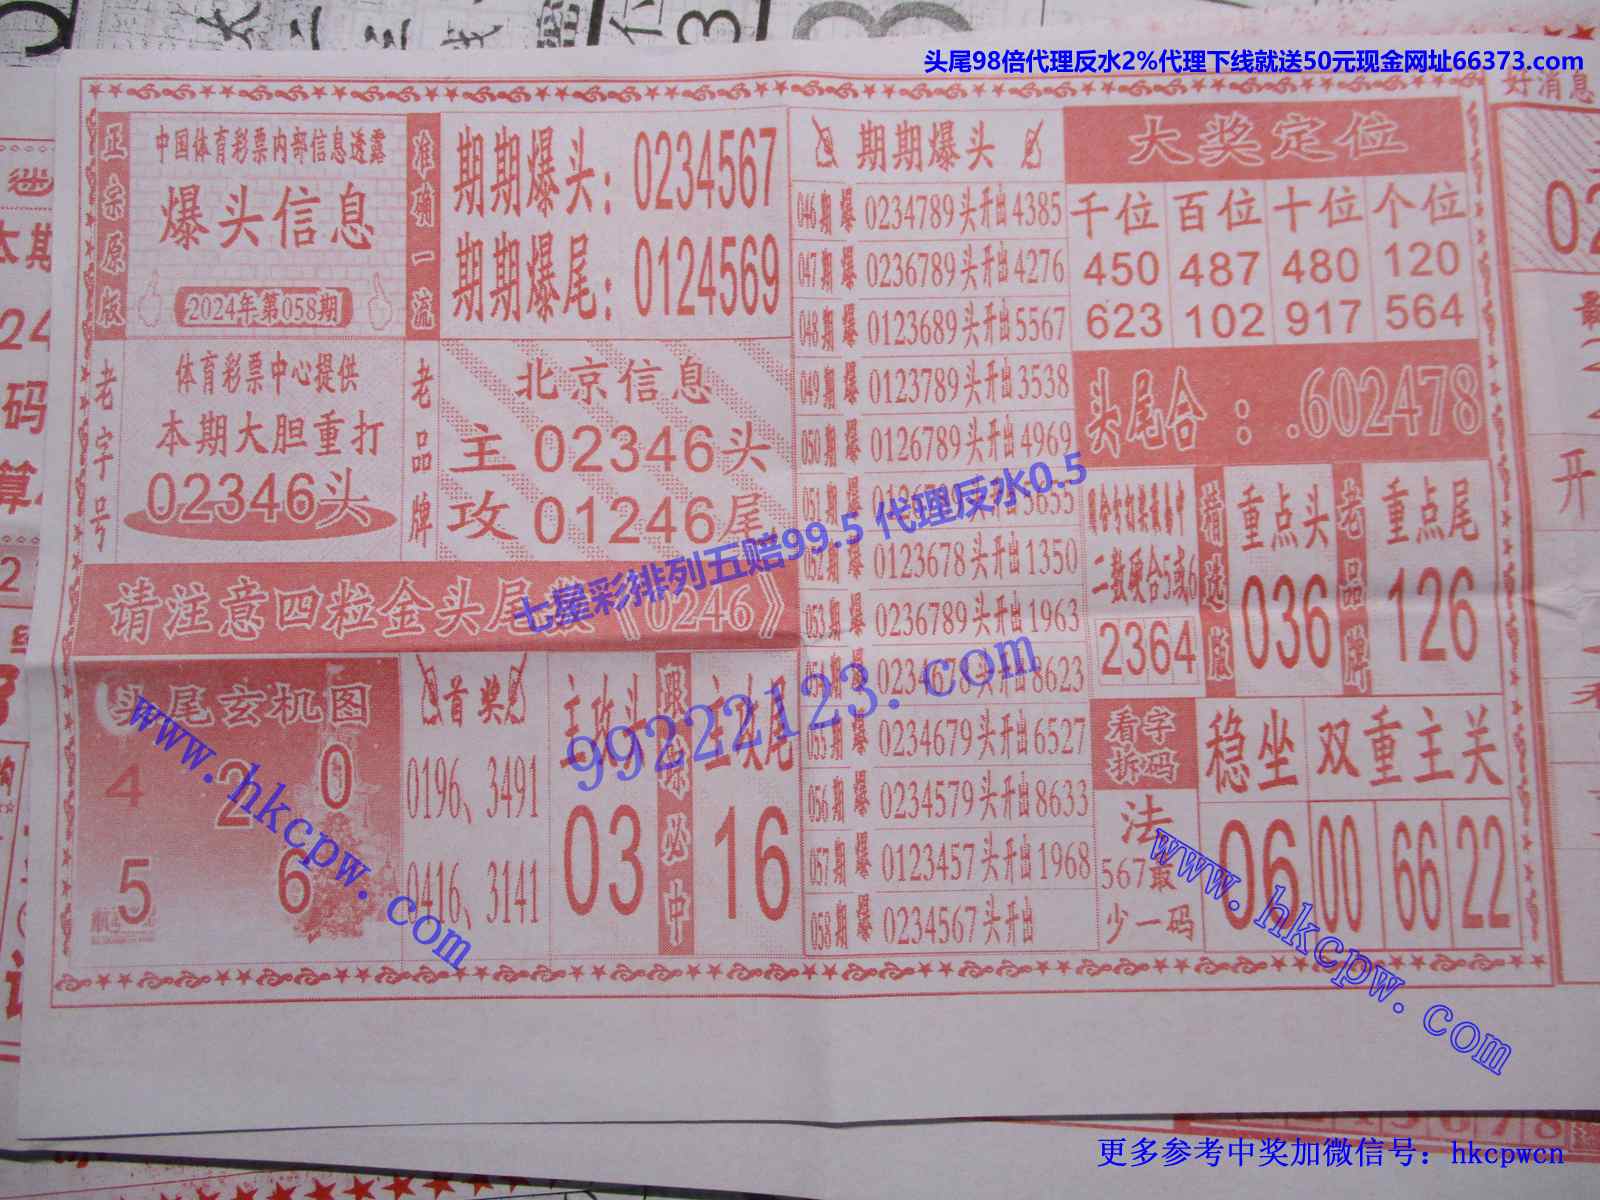 头尾98倍代理反水2%代理下线就送50元现金网址66373.com
好消息
正宗原版
中国体育彩票内部信息透露
爆头信息
2024年第058期
准确一流
期期爆头：0234567
期期爆尾：0124569
老字号
体育彩票中心提供
本期大胆重打
02346头
老品牌
北京信息
主02346头
攻01246尾
请注意四粒金头尾数《0246》
头尾玄机图
4 2 0
5 6
首奖
0196、3491
0416、3141
主攻头
03
跟踪必中
主攻尾
16
期期爆头
046期爆 0234789头开出4385
047期爆 0236789头开出4276
048期爆 0123689头开出5567
049期爆 0123789头开出3538
050期爆 0126789头开出4969
052期爆 0123678头开出1350
053期爆 0236789头开出1963
054期爆 头开出8623
055期爆 0234679头开出6527
056期爆 0234579头开出8633
057期爆 0123457头开出1968
058期爆 0234567头开出
大奖定位
千位 百位 十位 个位
450 487 480 120
623 102 917 564
头尾合：.602478
二数硬合5或6
2364
精选版
重点头
036
老品牌
重点尾
126
看字拆码
法
567最
少一码
稳坐
06
双重主关
00 66 22
七星彩排列五赔99.5 代理反水0.5
99222123.com
www.hkcpw.com
www.hkcpw.com
更多参考中奖加微信号：hkcpwcn